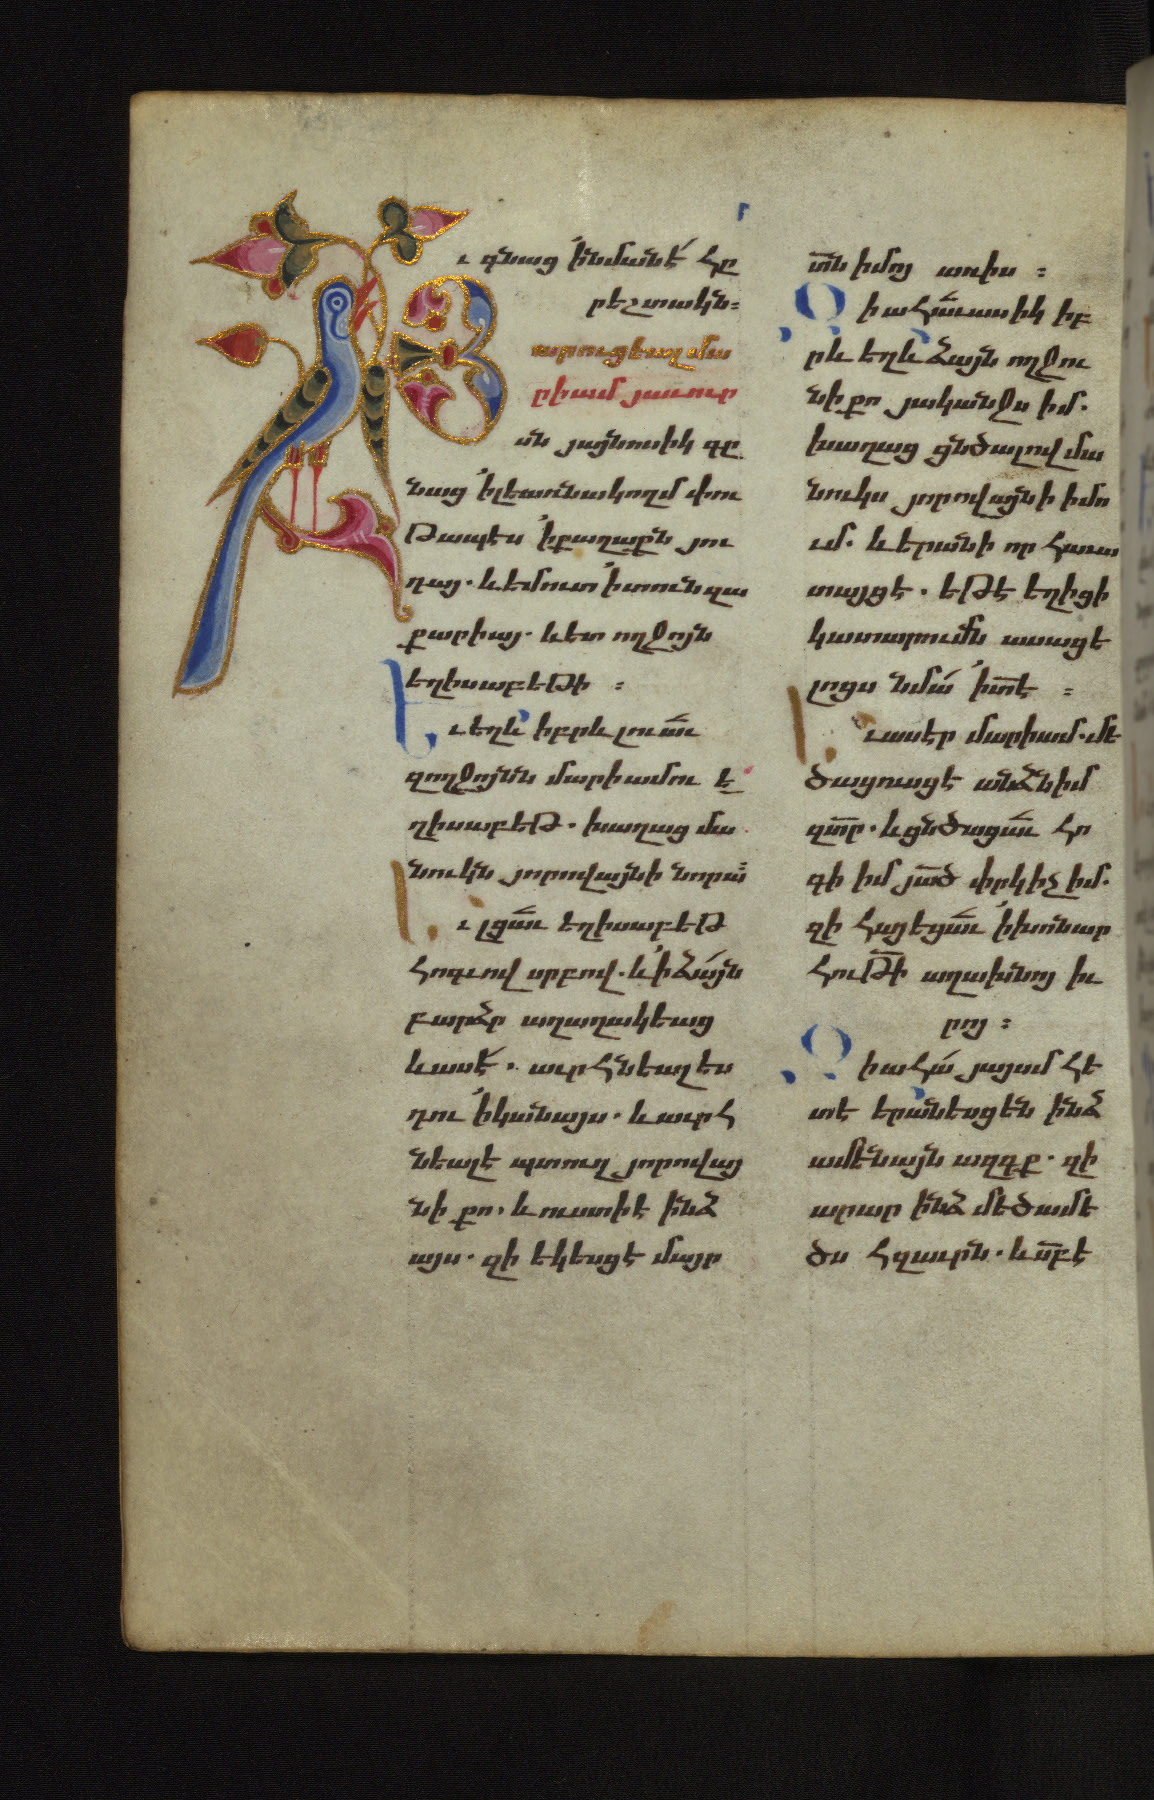 ւ գնաց ՛ինմանէ՛ հը
րեշտակն։
արուցեալ մա
րիամ յաւուր
սն յայնոսիկ գը
նաց ՛իլեառնակողմ փու
թապէս ՛իքաղաքն յու
դայ. և եմուտ ՛իտունզա
քարիայ. և ետ ողջոյն
եղիսաբեթի ։
Եւ եղև իբրև լուաւ
զողջոյնն մարիամու ե
ղիսաբեթ. խաղաց մա
նուկն յորովայնի նորա։
Եւ լցաւ եղիսաբեթ
հոգւով սրբով. և ՛ի ձայն
բարձր աղաղակեաց
և ասէ՛. աւրհնեալ ես
դու ՛իկանայս. և աւրհ
նեալ է պտուղ յորովայ
նի քո. և ուստի է ինձ
այս. զի եկեսցէ մայր
տն իմոյ առիս ։
Զի ահաւասիկ իբ
րև եղև ձայն ողջու
նի քո յականջս իմ.
խաղաց ցնծալով մա
նուկս յորովայնի իմո
ւմ. և երանի որ հաւա
տայցէ. եթէ եղիցի
կատարումն ասացե
լոցս նմա՛ ՛ի տէ ։
Եւ ասէր մարիամ. մե
ծացուսցէ անձն իմ
զտր. և ցնծացաւ հո
գի իմ յած փրկիչ իմ.
զի հայեցաւ ՛ի խոնար
հութի աղախնոյ իւ
րոյ ։
Զի ահա՛ յայսմ հե
տէ երանեսցեն ինձ
ամենայն ազգք. զի
արար ինձ մեծամե
ծս հզաւրն. և սբ է